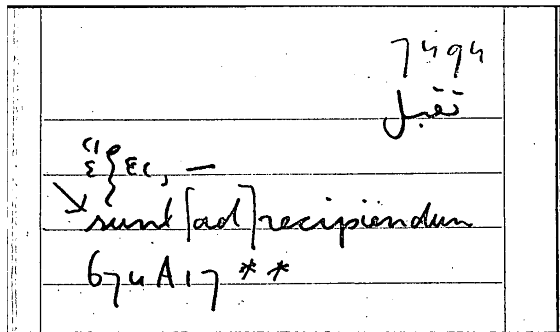 7494
تقبل
sunt [ad] recipiendum
674A17 **